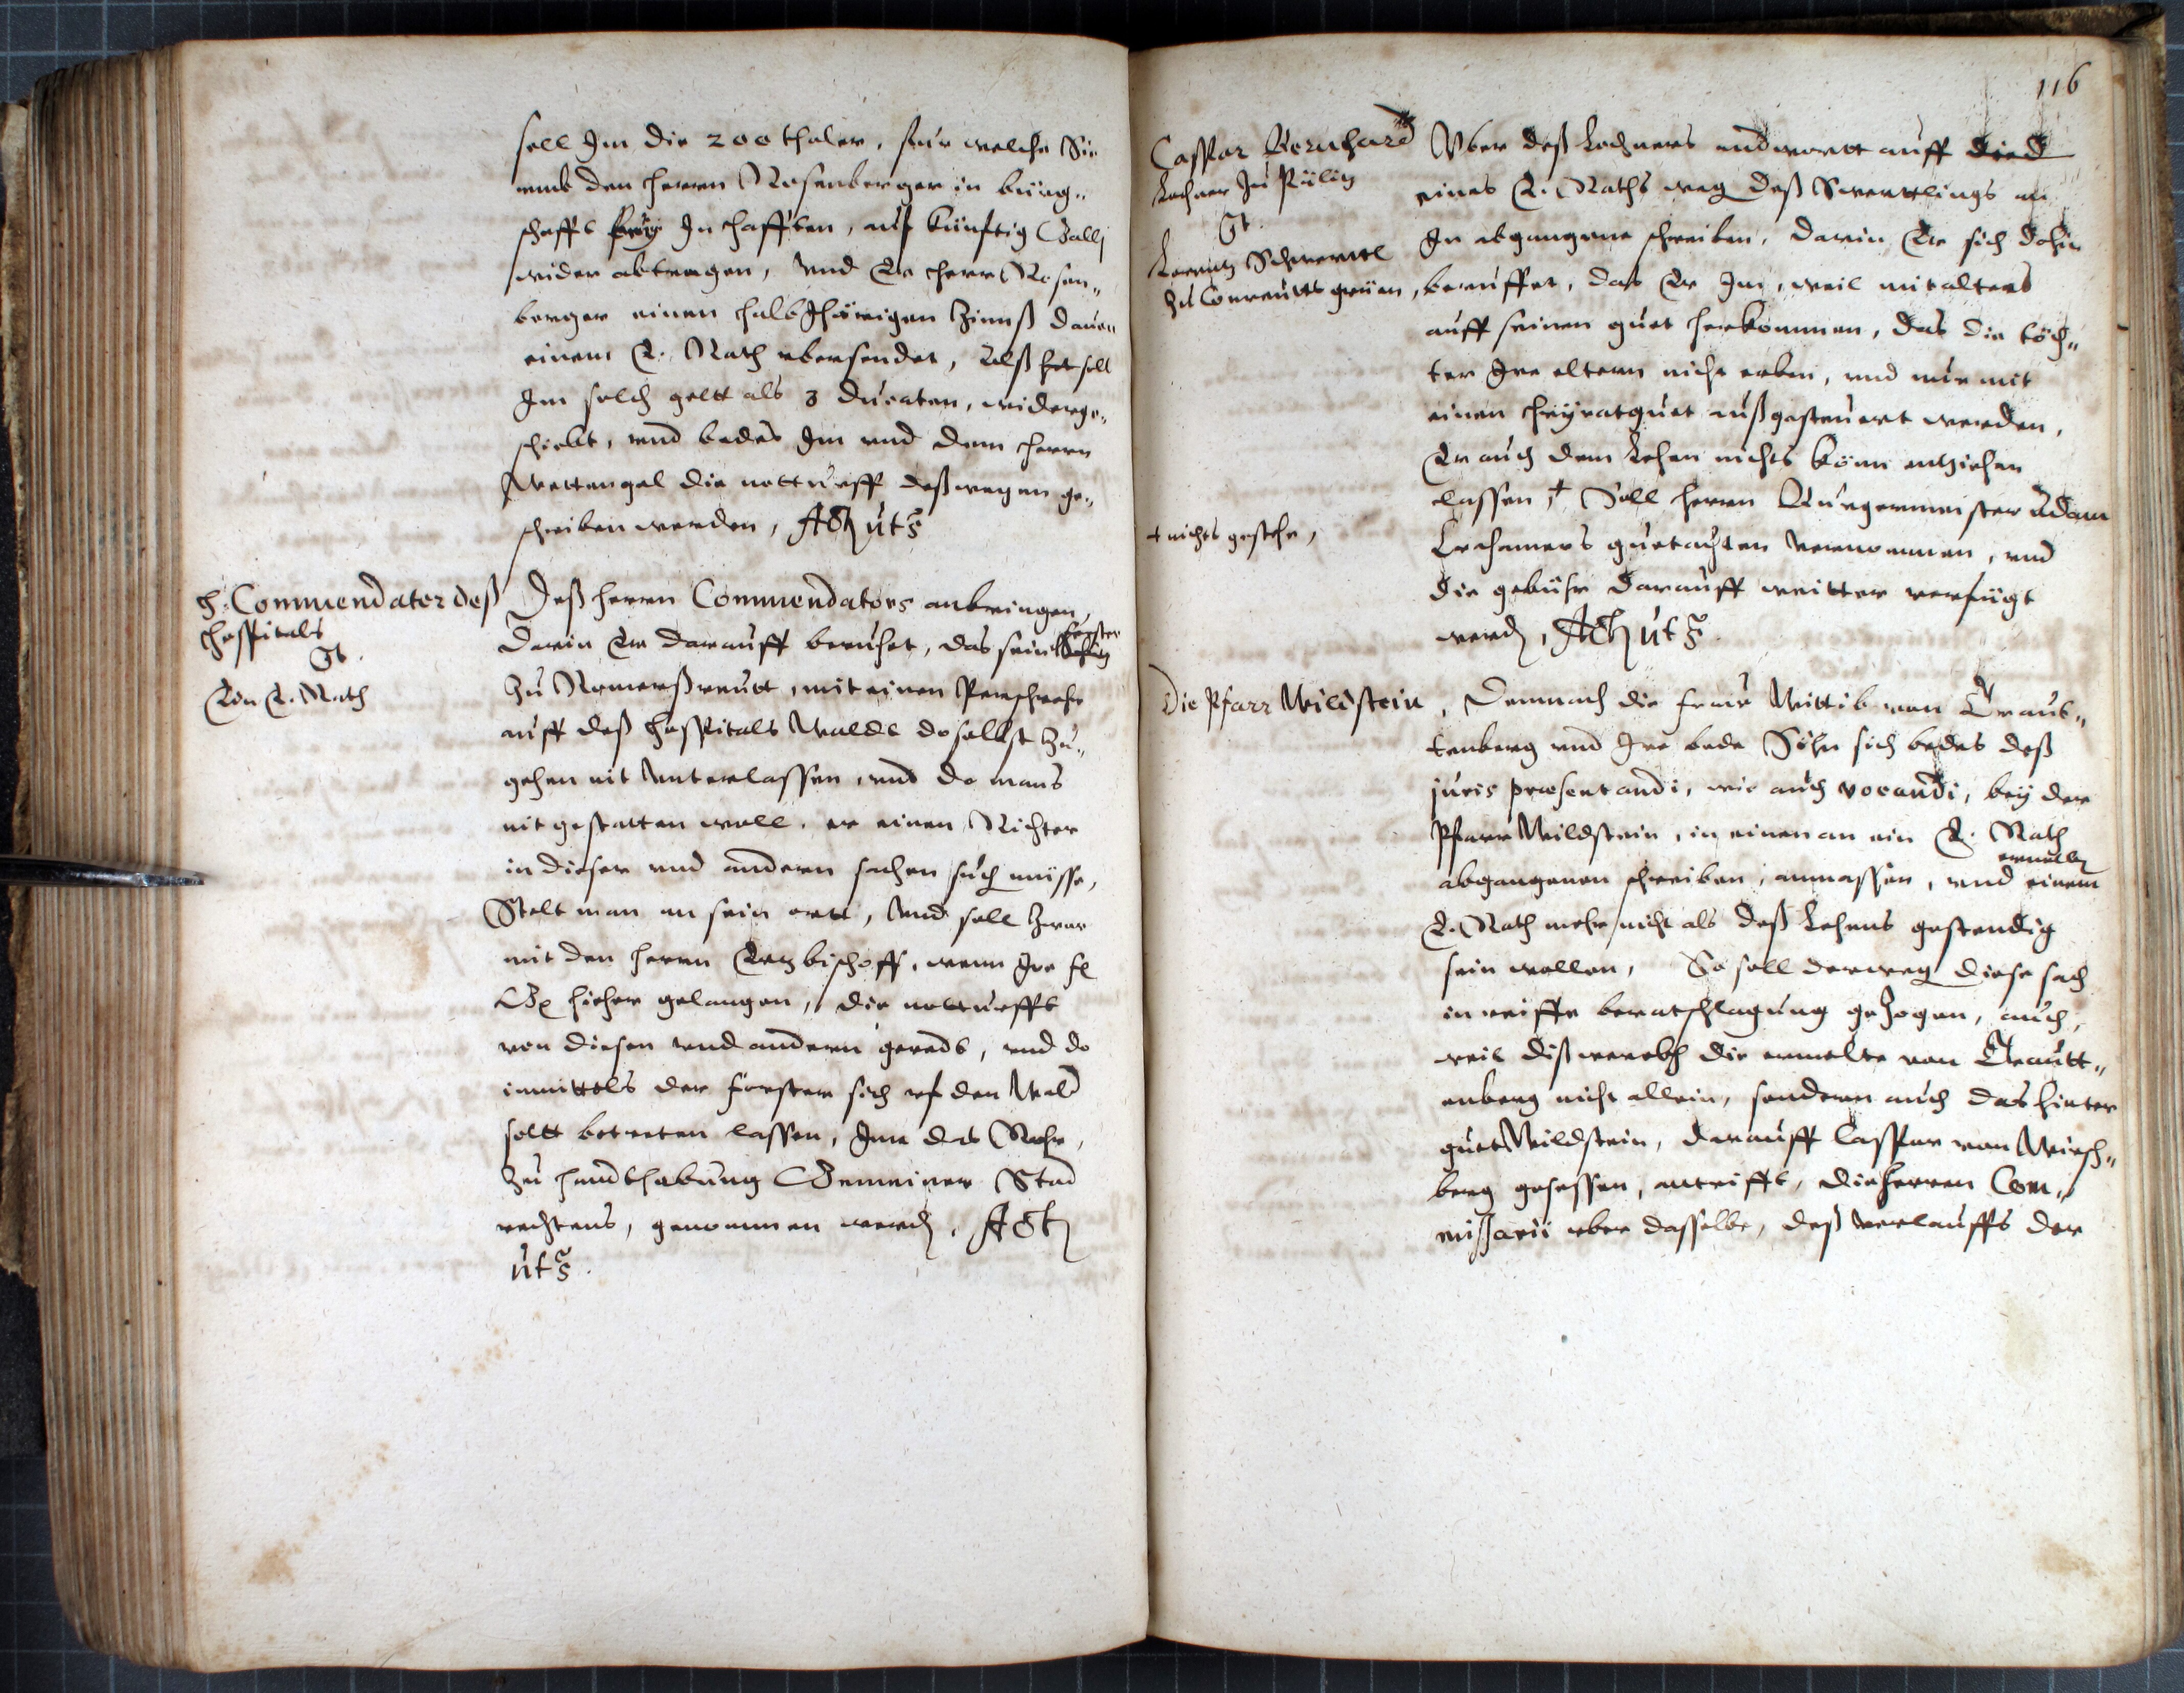 soll Im die 200 thaler, fur welche Sie
umb den herrn Rosenberger in burg„
schafft In hafften, auf kunftig Galli
wider abtragen, und Er herr Rosen„
berger einen halbJhärigen Zinnß dauon
einem E. Rath ubersendet, Alß soll
Im solch geltt als 3 ducaten, widerge„
schickt, und bedes Im und dem herrn
Wettengel die notturfft deßwegen ge„
schriben werden, Act ut s
H. Commendator deß
Hospitals
Ct.
Ein E. Rath
Deß herrn Commendators anbringen,
Darin Er darauff beruhet, das sein
forster
Zu Romerßreutt, mit einem Purschrohr
auff deß Hospitals Walde doselbst Zu„
gehen nit Unterlassen, und do mans
nit gestatten woll, er einen Richter
in dieser und andern sachen such müsse,
Stelt man an sein ortt, Und soll Zwar
mit den herrn Ertzbischoff, wenn Ire fl
Gn hieher gelangen, die notturfft
von diesen und andern geredt, und do
inmittels der förster sich uf den Wald
soltt betreten lassen, Ime das Rohr,
Zu handthabung Gemeiner Stad
rechtens, genommen werd. Act
ut s.
116
Caspar Bernhard
Lochner Zu Pülitz
Ct.
Lorentz Schwertl
Zu Conreutts grüen,
Uber deß Lochners andwortt auff
eines E. Raths weg deß Swerttlings an
In abgangene schreiben, darin Er sich dohin
beruffet, das Er Im, weil mit alters
auff seinen guet herkommen, das die töch„
ter Ire eltern nicht erben, und nur mit
einen Heyratguet außgesteuert werden,
Er auch dem Lehen nichts könn entziehen
lassen, † Soll herrn Burgermeister Adam
† nichts gestehe,
guetachten vernommen, und
die gebühr darauff weitter verfügt
werd, Act ut s.
Die Pfarr Wildstein, Demnach die fraw Wittib von Traut„
tenberg und Ire bede Söhn sich bedes deß
juris præsentandi, wie auch vocandi, bey der
Pfarr Wildstein, in einen an ein E. Rath
abgangenen schreiben, anmassen, und einem
E. Rath mehr nicht als deß Lehens gestendig
sein wollen, So soll derweg diese sach
in reiffe beratschlagung gezogen, auch,
weil diß werckh die ermelte von Trautt„
enberg nicht allein, sondern auch das hinter
guet Wildstein, darauff Caspar von Wirsch„
berg gesessen, antrifft, die herren Com„
missarii uber dasselbe, deß verlauffs der